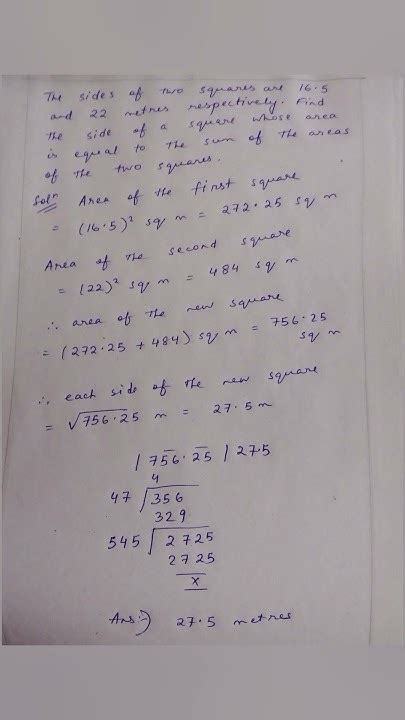 The sides of two squares are 16.5
and 22 metres respectively. Find
the side of a square whose area
is equal to the sum of the areas
of the two squares.
Solⁿ Area of the first square
= (16.5)² sq m = 272.25 sq m
Area of the second square
= (22)² sq m = 484 sq m
∴ area of the new square
= (272.25 + 484) sq m = 756.25
sq m
∴ each side of the new square
= √756.25 m = 27.5 m
| 756.25 | 27.5
4
47 | 356
329
545 | 2725
2725
x
Ans:-) 27.5 metres